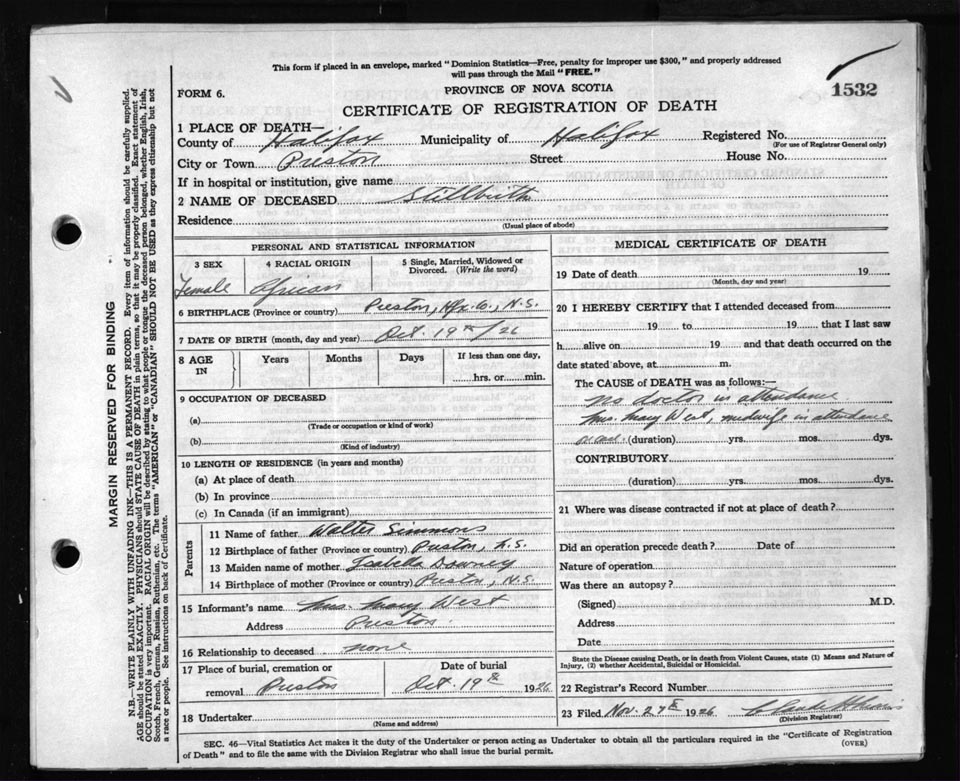 This form if placed in an envelope, marked "Dominion Statistics—Free, penalty for improper use $300," and properly addressed
will pass through the Mail "FREE."
FORM 6.
PROVINCE OF NOVA SCOTIA
1532
CERTIFICATE OF REGISTRATION OF DEATH
1 PLACE OF DEATH—
County of Halifax Municipality of Halifax Registered No.
(For use of Registrar General only)
City or Town Preston Street House No.
If in hospital or institution, give name
2 NAME OF DECEASED Stillbirth
Residence
(Usual place of abode)
PERSONAL AND STATISTICAL INFORMATION
3 SEX 4 RACIAL ORIGIN 5 Single, Married, Widowed or Divorced. (Write the word)
Female African
6 BIRTHPLACE (Province or country) Preston, Hfx. Co., N.S.
7 DATE OF BIRTH (month, day and year) Oct. 19th/26
8 AGE IN Years Months Days If less than one day,
hrs. or min.
9 OCCUPATION OF DECEASED
(a)
(Trade or occupation or kind of work)
(b)
(Kind of industry)
10 LENGTH OF RESIDENCE (in years and months)
(a) At place of death
(b) In province
(c) In Canada (if an immigrant)
Parents
11 Name of father Walter Simmons
12 Birthplace of father (Province or country) Preston, N.S.
13 Maiden name of mother Isabella Downey
14 Birthplace of mother (Province or country) Preston, N.S.
15 Informant's name Mrs. Mary West
Address Preston.
16 Relationship to deceased none
17 Place of burial, cremation or removal Preston
Date of burial
Oct. 19th 1926
18 Undertaker
(Name and address)
MEDICAL CERTIFICATE OF DEATH
19 Date of death 19
(Month, day and year)
20 I HEREBY CERTIFY that I attended deceased from
19 to 19 that I last saw
h alive on 19 and that death occurred on the
date stated above, at m.
The CAUSE of DEATH was as follows:—
No doctor in attendance
Mrs. Mary West, midwife in attendance
(duration) yrs. mos. dys.
CONTRIBUTORY
(duration) yrs. mos. dys.
21 Where was disease contracted if not at place of death?
Did an operation precede death? Date of
Nature of operation
Was there an autopsy?
(Signed) M.D.
Address
Date
State the Disease causing Death, or in death from Violent Causes, state (1) Means and Nature of
Injury, (2) whether Accidental, Suicidal or Homicidal.
22 Registrar's Record Number
23 Filed Nov. 27th 1926
(Division Registrar)
SEC. 46—Vital Statistics Act makes it the duty of the Undertaker or person acting as Undertaker to obtain all the particulars required in the "Certificate of Registration
of Death" and to file the same with the Division Registrar who shall issue the burial permit. (OVER)
MARGIN RESERVED FOR BINDING
N.B.—WRITE PLAINLY WITH UNFADING INK—THIS IS A PERMANENT RECORD. Every item of information should be carefully supplied.
AGE should be stated EXACTLY. PHYSICIANS should STATE CAUSE OF DEATH in plain terms, so that it may be properly classified. Exact statement of
OCCUPATION is very important. RACIAL ORIGIN will be described by stating to what people or tongue the deceased person belonged, whether English, Irish,
Scotch, French, German, Russian, Ruthenian, etc. The terms "AMERICAN" or "CANADIAN" SHOULD NOT BE USED as they express citizenship but not
a race or people. See instructions on back of Certificate.